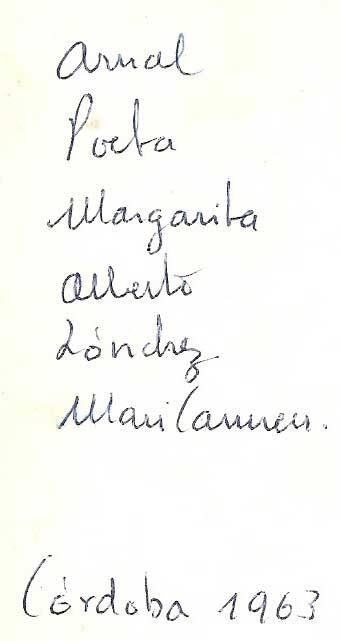 Arnal
Poeta
Margarita
Alberto
Sánchez
Mari Carmen.
Córdoba 1963